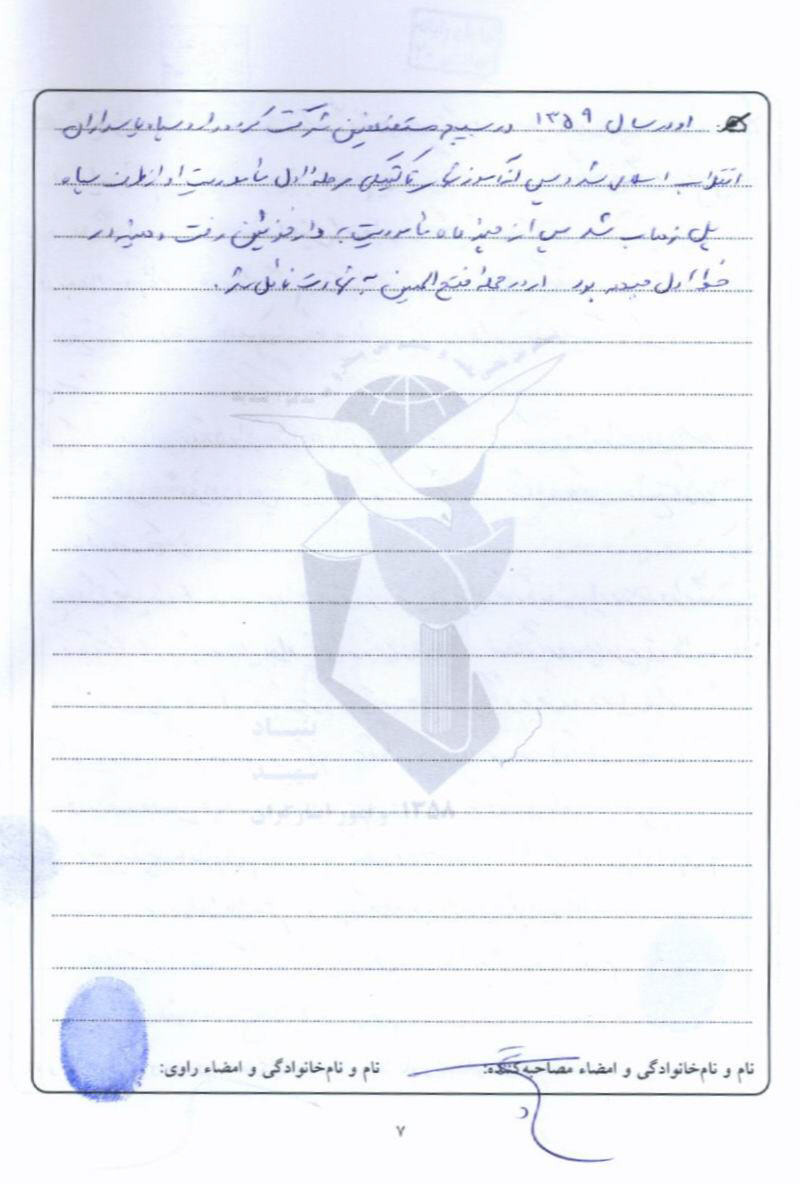 او در سال ۱۳۵۹ در بسیج مستضعفین شرکت کرد و وارد سپاه پاسداران
انقلاب اسلامی شد و پس از آموزشهای تاکتیکی مرحله اول مأموریت او از طرف سپاه
پل ذهاب شد پس از چند ماه مأموریت به دارخوئین رفت و همیشه در
خط اول جبهه بود او در حمله فتح المبین به شهادت نائل شد.
بنیاد
شهید
۱۳۵۸
نام و نام‌خانوادگی و امضاء مصاحبه‌کننده:
نام و نام‌خانوادگی و امضاء راوی:
۷